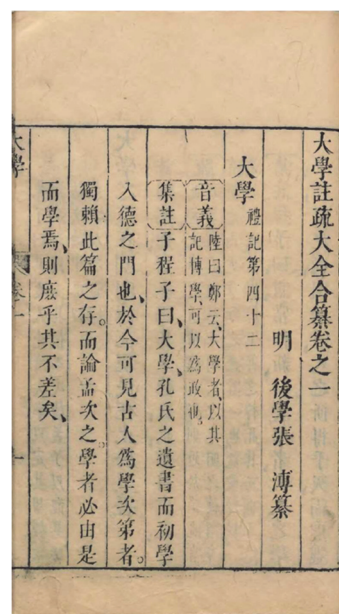 大學註疏大全合纂卷之一
明　後學張　溥纂
大學　禮記第四十二
音義　陸曰鄭云大學者以其
記博學可以為政也
集註　子程子曰大學孔氏之遺書而初學
入德之門也於今可見古人為學次第者
獨賴此篇之存而論孟次之學者必由是
而學焉則庶乎其不差矣
大學　卷一　一